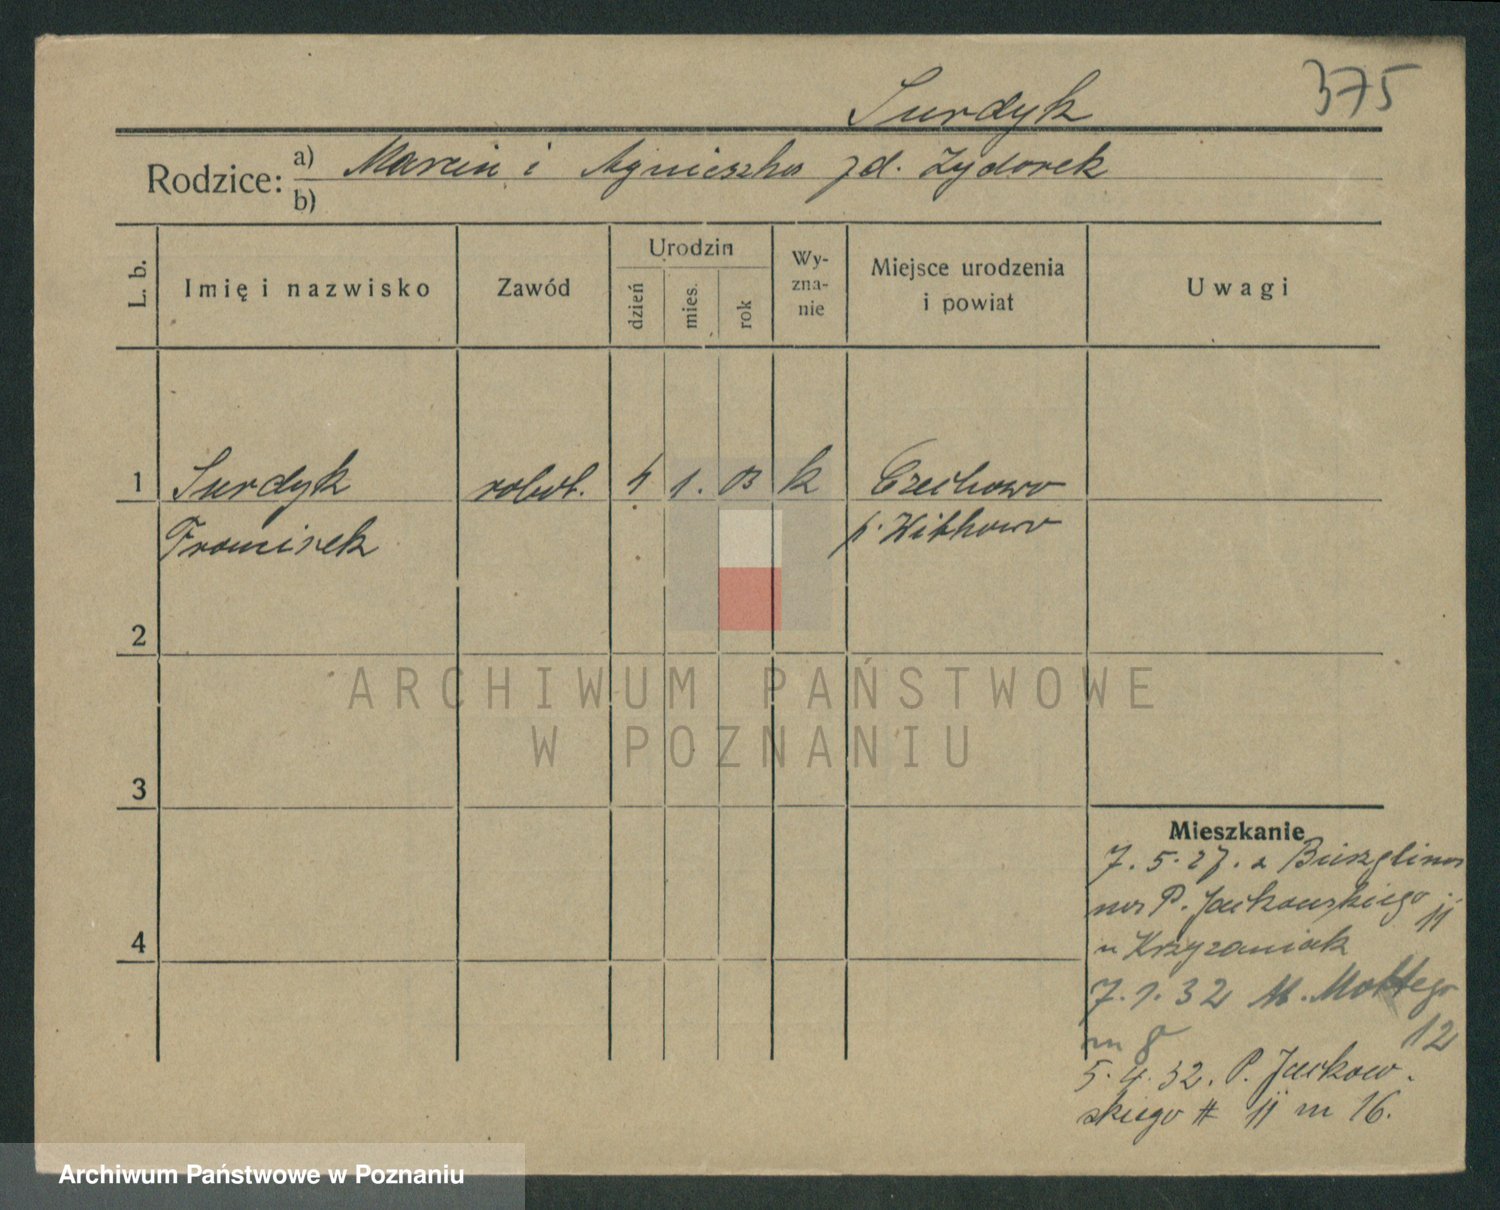 375
Surdyk
Rodzice: a) Marcin i Agnieszka zd. Zydorek
b)
L. b.
Imię i nazwisko
Zawód
Urodzin
dzień
mies.
rok
Wy-
zna-
nie
Miejsce urodzenia
i powiat
Uwagi
1 Surdyk robot. 4 1. 03 k Czechowo
Franciszek p. Witkowo
2
3
4
ARCHIWUM PAŃSTWOWE
W POZNANIU
Mieszkanie
7. 5. 27. z
P. Jackowskiego 11
u Krzyzaniak
7. 1. 32 M. Mottego
m 8 12
5. 4. 32. P. Jackow.
skiego # 11 m 16.
Archiwum Państwowe w Poznaniu